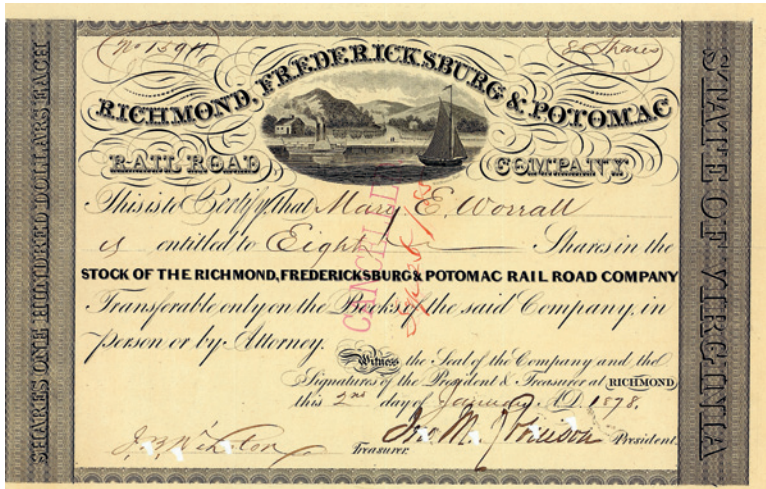 No 1594
8 Shares
RICHMOND, FREDERICKSBURG & POTOMAC
RAIL ROAD COMPANY
This is to Certify that Mary E. Worrall
is entitled to Eight Shares in the
STOCK OF THE RICHMOND, FREDERICKSBURG & POTOMAC RAIL ROAD COMPANY
Transferable only on the Books of the said Company, in
person or by Attorney.
Witness the Seal of the Company and the
Signatures of the President & Treasurer at RICHMOND
this 2nd day of January A.D. 1878.
Treasurer.
President.
SHARES ONE HUNDRED DOLLARS EACH
STATE OF VIRGINIA
CANCELLED